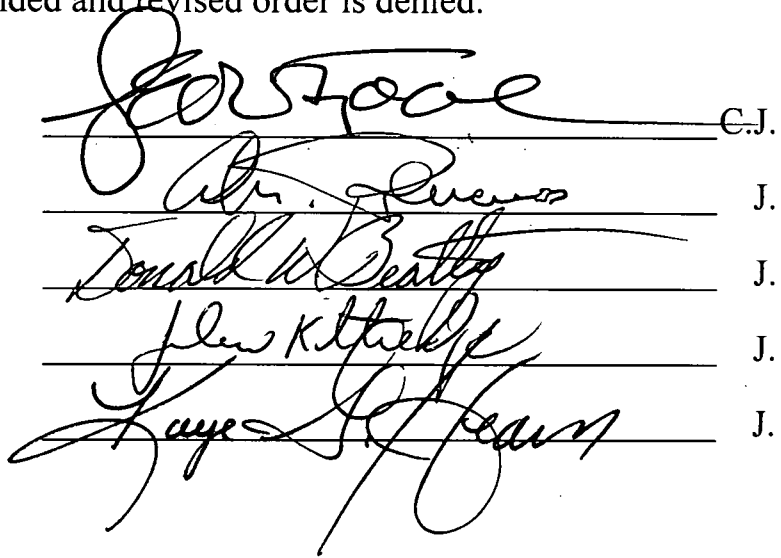 nded and revised order is denied.
C.J.
J.
Donald W. Beatty J.
John Kittredge J.
Kaye G. Hearn J.